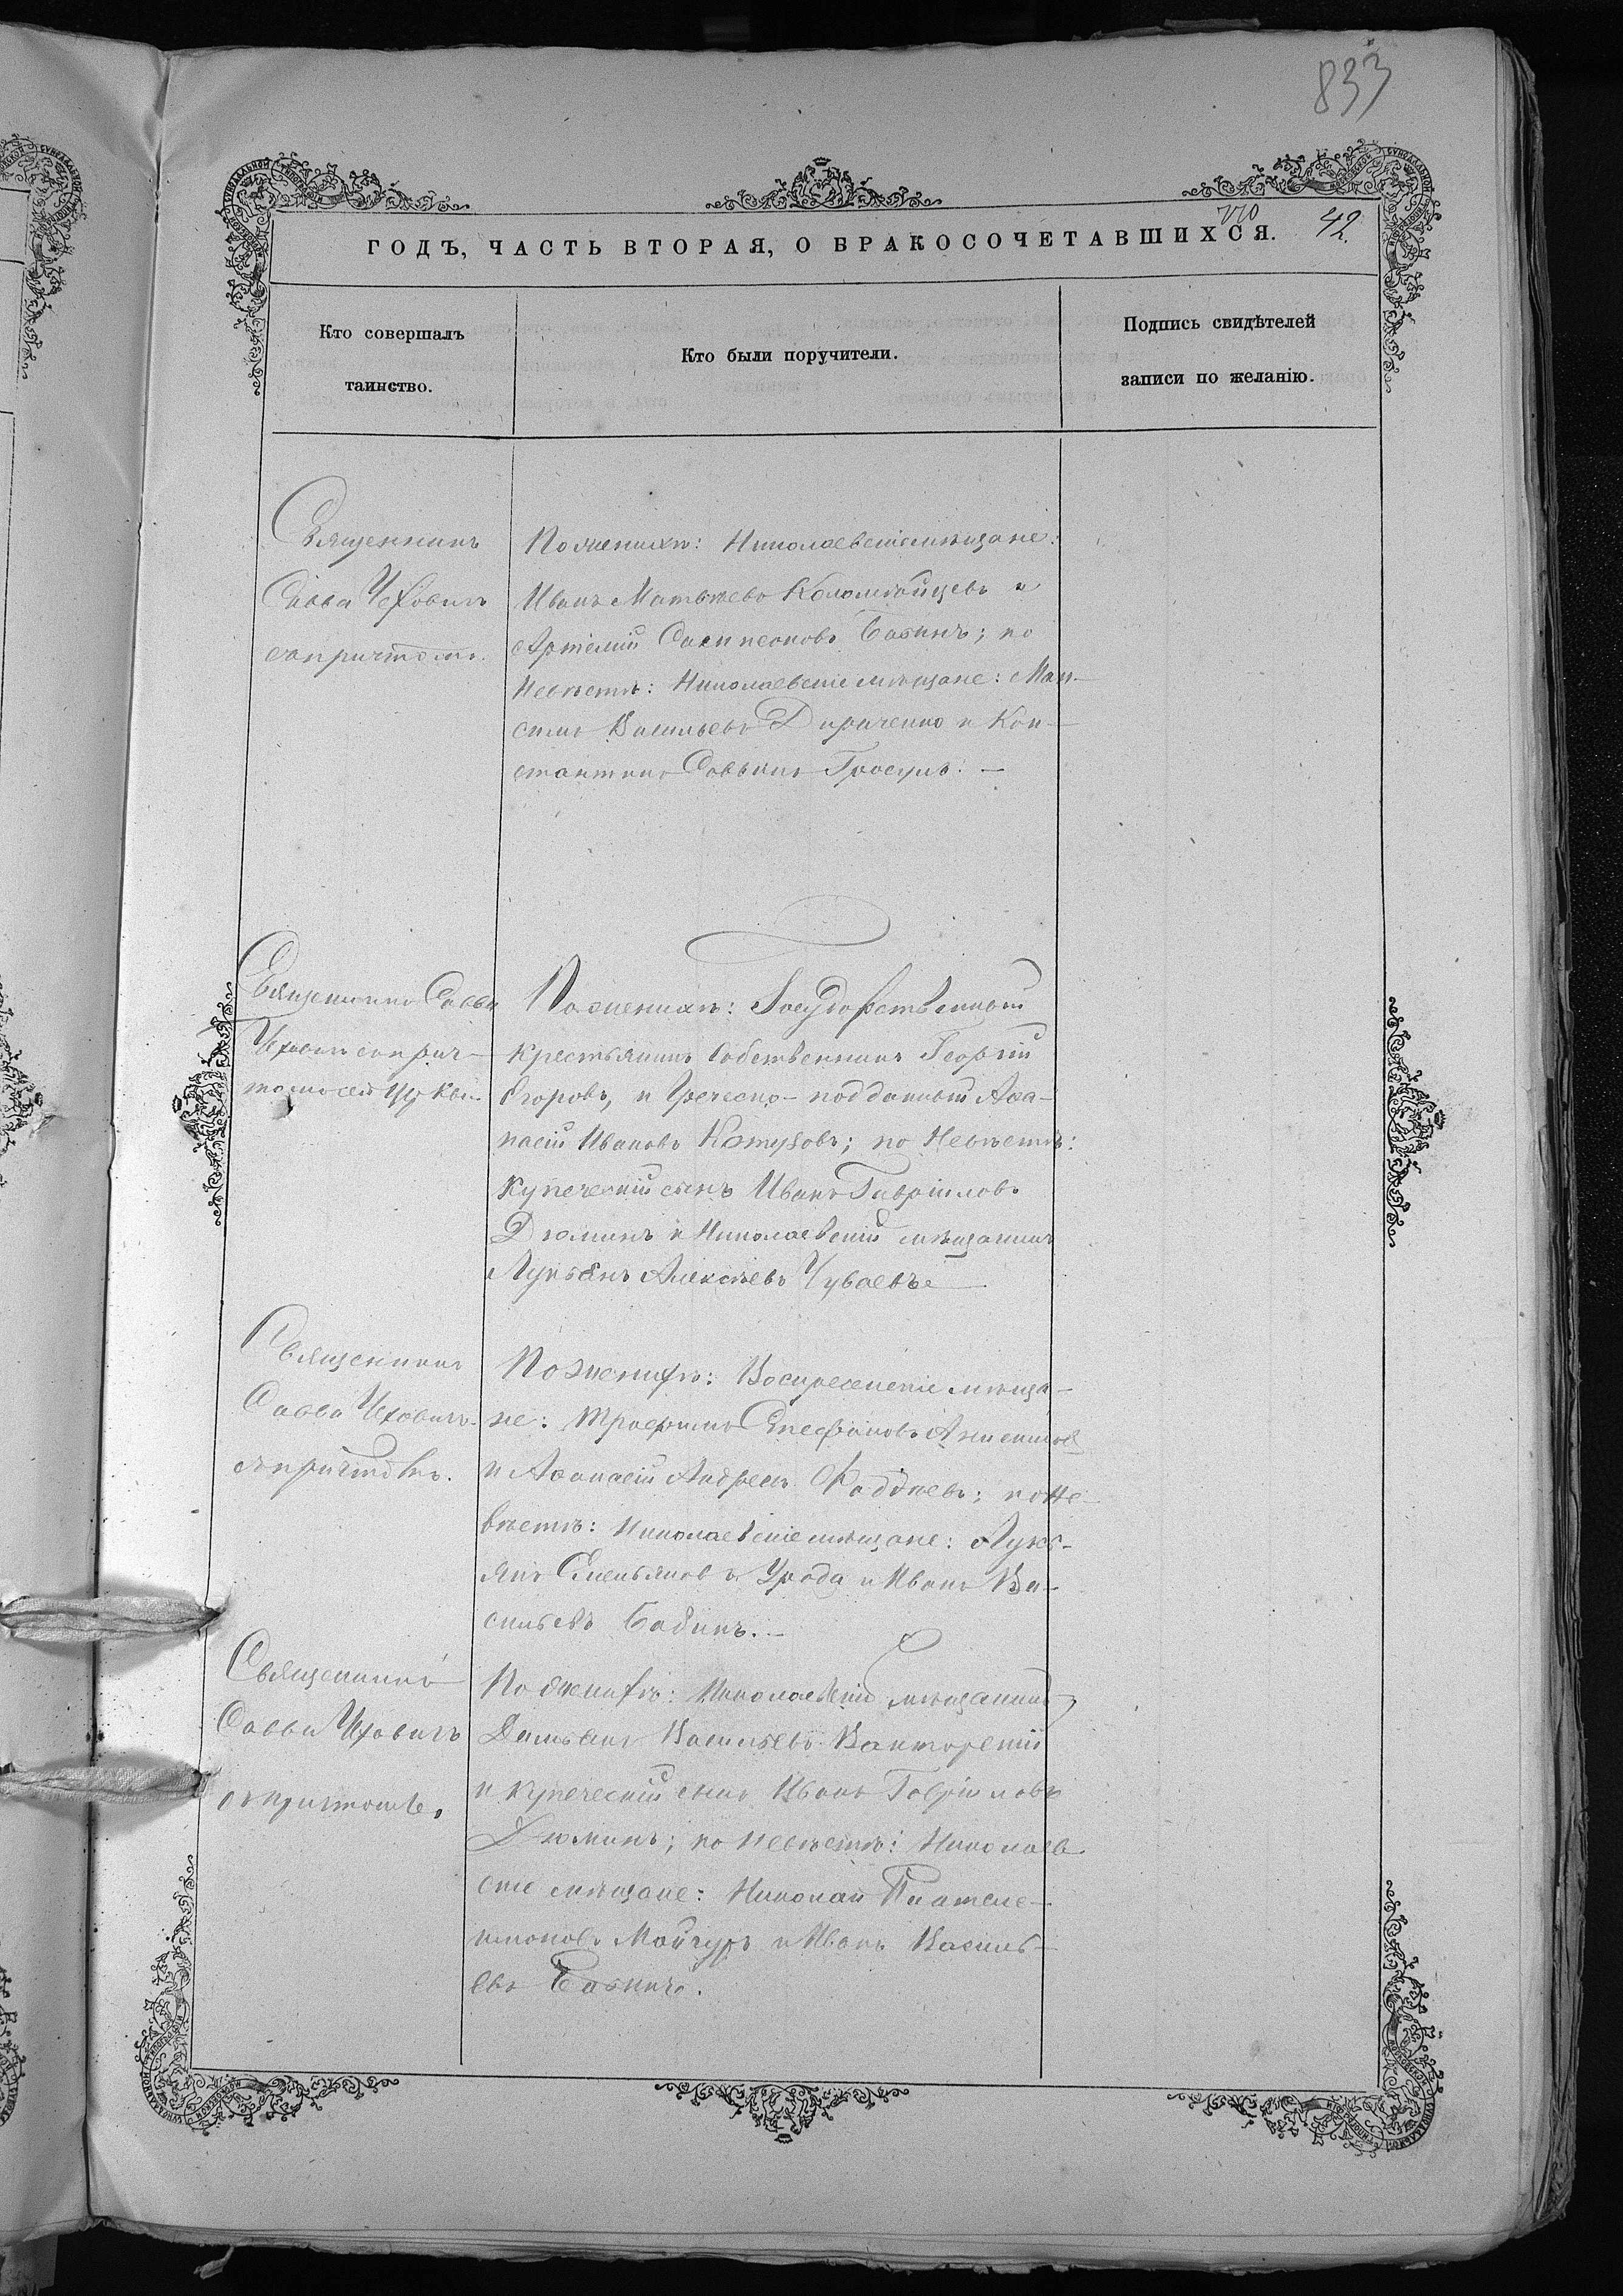 833
770 42.
ГОДЪ, ЧАСТЬ ВТОРАЯ, О БРАКОСОЧЕТАВШИХСЯ.
Кто совершалъ
таинство.
Кто были поручители.
Подпись свидѣтелей
записи по желанію.
Священникъ
Савва Чехович
сопричтомъ.
По женихѣ: Николаевскіе мѣщане:
Иванъ Матвѣевъ Коломойцевъ и
Артемій Бабинъ; по
Невѣстѣ: Николаевскіе мѣщане: Мак-
симъ Васильевъ и Кон-
стантинъ Саввинъ
Священникъ Савва
Чеховичъ соприч-
томъ сей церкви
По женихѣ: Государственный
крестьянинъ собственникъ Георгій
Егоровъ, и Греческо-подданный Аѳа-
насій Ивановъ; по Невѣстѣ:
Купеческій сынъ Иванъ Гавріиловъ
Дюминъ и Николаевскій мѣщанинъ
Лукьянъ Алексѣевъ Чуваевъ
Священникъ
Савва Чеховичъ
съпричтомъ.
По женихѣ: Воскресенскіе мѣща-
не: Трофимъ
и Аѳанасій Андреевъ Фаддѣевъ; по Не-
вѣстѣ: Николаевскіе мѣщане: Лукь-
янъ Емельяновъ Урода и Иванъ Ва-
сильевъ Бабинъ.
Священникъ
Савва Чеховичъ
съ причтомъ.
По женихѣ: Николаевскій мѣщанинъ
Демьянъ Васильевъ Канторскій
и купеческій сынъ Иванъ Гавріиловъ
Дюминъ; по Невѣстѣ: Николаев
скіе мѣщане: Николай Пантеле-
имоновъ Майчукъ и Иванъ Василь-
евъ Бабинъ.